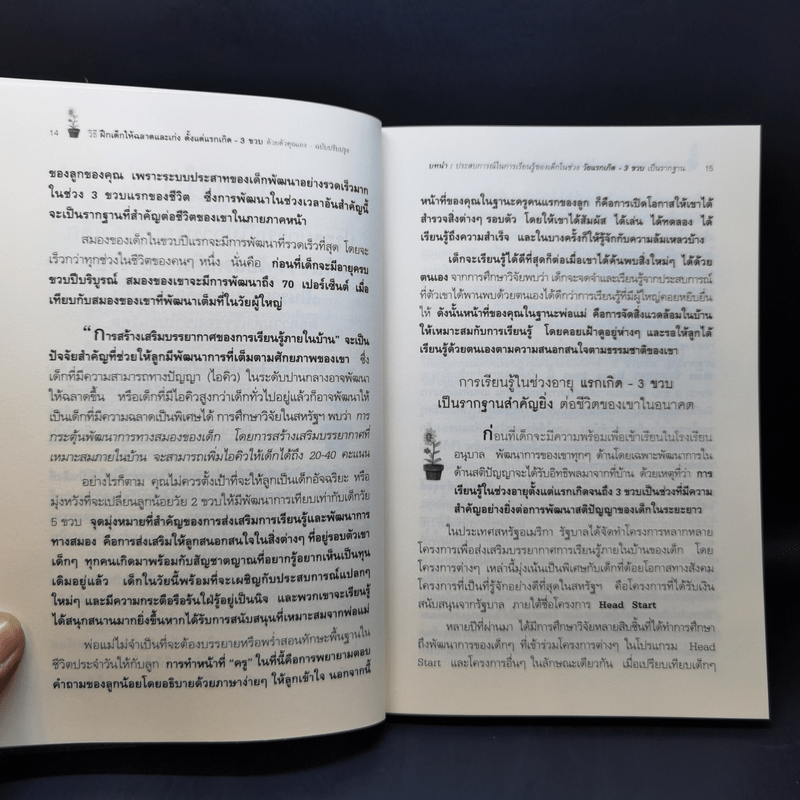 14 วิธี ฝึกเด็กให้ฉลาดและเก่ง ตั้งแต่แรกเกิด - 3 ขวบ ด้วยตัวคุณเอง - ฉบับปรับปรุง
ของลูกของคุณ เพราะระบบประสาทของเด็กพัฒนาอย่างรวดเร็วมาก
ในช่วง 3 ขวบแรกของชีวิต ซึ่งการพัฒนาในช่วงเวลาอันสำคัญนี้
จะเป็นรากฐานที่สำคัญต่อชีวิตของเขาในภายภาคหน้า
สมองของเด็กในขวบปีแรกจะมีการพัฒนาที่รวดเร็วที่สุด โดยจะ
เร็วกว่าทุกช่วงในชีวิตของคนๆ หนึ่ง นั่นคือ ก่อนที่เด็กจะมีอายุครบ
ขวบปีบริบูรณ์ สมองของเขาจะมีการพัฒนาถึง 70 เปอร์เซ็นต์ เมื่อ
เทียบกับสมองของเขาที่พัฒนาเต็มที่ในวัยผู้ใหญ่
"การสร้างเสริมบรรยากาศของการเรียนรู้ภายในบ้าน" จะเป็น
ปัจจัยสำคัญที่ช่วยให้ลูกมีพัฒนาการที่เต็มตามศักยภาพของเขา ซึ่ง
เด็กที่มีความสามารถทางปัญญา (ไอคิว) ในระดับปานกลางอาจพัฒนา
ให้ฉลาดขึ้น หรือเด็กที่มีไอคิวสูงกว่าเด็กทั่วไปอยู่แล้วก็อาจพัฒนาให้
เป็นเด็กที่มีความฉลาดเป็นพิเศษได้ การศึกษาวิจัยในสหรัฐฯ พบว่า การ
กระตุ้นพัฒนาการทางสมองของเด็ก โดยการสร้างเสริมบรรยากาศที่
เหมาะสมภายในบ้าน จะสามารถเพิ่มไอคิวให้เด็กได้ถึง 20-40 คะแนน
อย่างไรก็ตาม คุณไม่ควรตั้งเป้าที่จะให้ลูกเป็นเด็กอัจฉริยะ หรือ
มุ่งหวังที่จะเปลี่ยนลูกน้อยวัย 2 ขวบให้มีพัฒนาการเทียบเท่ากับเด็กวัย
5 ขวบ จุดมุ่งหมายที่สำคัญของการส่งเสริมการเรียนรู้และพัฒนาการ
ทางสมอง คือการส่งเสริมให้ลูกสนอกสนใจในสิ่งต่างๆ ที่อยู่รอบตัวเขา
เด็กๆ ทุกคนเกิดมาพร้อมกับสัญชาตญาณที่อยากรู้อยากเห็นเป็นทุน
เดิมอยู่แล้ว เด็กในวัยนี้พร้อมที่จะเผชิญกับประสบการณ์แปลกๆ
ใหม่ๆ และมีความกระตือรือร้นใฝ่รู้อยู่เป็นนิจ และพวกเขาจะเรียนรู้
ได้สนุกสนานมากยิ่งขึ้นหากได้รับการสนับสนุนที่เหมาะสมจากพ่อแม่
พ่อแม่ไม่จำเป็นที่จะต้องบรรยายหรือพร่ำสอนทักษะพื้นฐานใน
ชีวิตประจำวันให้กับลูก การทำหน้าที่ "ครู" ในที่นี้คือการพยายามตอบ
คำถามของลูกน้อยโดยอธิบายด้วยภาษาง่ายๆ ให้ลูกเข้าใจ นอกจากนี้
บทนำ / ประสบการณ์ในการเรียนรู้ของเด็กในช่วง วัยแรกเกิด - 3 ขวบ เป็นรากฐาน 15
หน้าที่ของคุณในฐานะครูคนแรกของลูก ก็คือการเปิดโอกาสให้เขาได้
สำรวจสิ่งต่างๆ รอบตัว โดยให้เขาได้สัมผัส ได้เล่น ได้ทดลอง ได้
เรียนรู้ถึงความสำเร็จ และในบางครั้งก็ให้รู้จักกับความล้มเหลวบ้าง
เด็กจะเรียนรู้ได้ดีที่สุดก็ต่อเมื่อเขาได้ค้นพบสิ่งใหม่ๆ ได้ด้วย
ตนเอง จากการศึกษาวิจัยพบว่า เด็กจะจดจำและเรียนรู้จากประสบการณ์
ที่ตัวเขาได้พานพบด้วยตนเองได้ดีกว่าการเรียนรู้ที่มีผู้ใหญ่คอยหยิบยื่น
ให้ ดังนั้นหน้าที่ของคุณในฐานะพ่อแม่ คือการจัดสิ่งแวดล้อมในบ้าน
ให้เหมาะสมกับการเรียนรู้ โดยคอยเฝ้าดูอยู่ห่างๆ และรอให้ลูกได้
เรียนรู้ด้วยตนเองตามความสนอกสนใจตามธรรมชาติของเขา
การเรียนรู้ในช่วงอายุ แรกเกิด - 3 ขวบ
เป็นรากฐานสำคัญยิ่ง ต่อชีวิตของเขาในอนาคต
ก่อนที่เด็กจะมีความพร้อมเพื่อเข้าเรียนในโรงเรียน
อนุบาล พัฒนาการของเขาทุกๆ ด้านโดยเฉพาะพัฒนาการใน
ด้านสติปัญญาจะได้รับอิทธิพลมาจากที่บ้าน ด้วยเหตุที่ว่า การ
เรียนรู้ในช่วงอายุตั้งแต่แรกเกิดจนถึง 3 ขวบเป็นช่วงที่มีความ
สำคัญอย่างยิ่งต่อการพัฒนาสติปัญญาของเด็กในระยะยาว
ในประเทศสหรัฐอเมริกา รัฐบาลได้จัดทำโครงการหลากหลาย
โครงการเพื่อส่งเสริมบรรยากาศการเรียนรู้ภายในบ้านของเด็ก โดย
โครงการต่างๆ เหล่านี้มุ่งเน้นเป็นพิเศษกับเด็กที่ด้อยโอกาสทางสังคม
โครงการที่เป็นที่รู้จักอย่างดีที่สุดในสหรัฐฯ คือโครงการที่ได้รับเงิน
สนับสนุนจากรัฐบาล ภายใต้ชื่อโครงการ Head Start
หลายปีที่ผ่านมา ได้มีการศึกษาวิจัยหลายสิบชิ้นที่ได้ทำการศึกษา
ถึงพัฒนาการของเด็กๆ ที่เข้าร่วมโครงการต่างๆ ในโปรแกรม Head
Start และโครงการอื่นๆ ในลักษณะเดียวกัน เมื่อเปรียบเทียบเด็กๆ